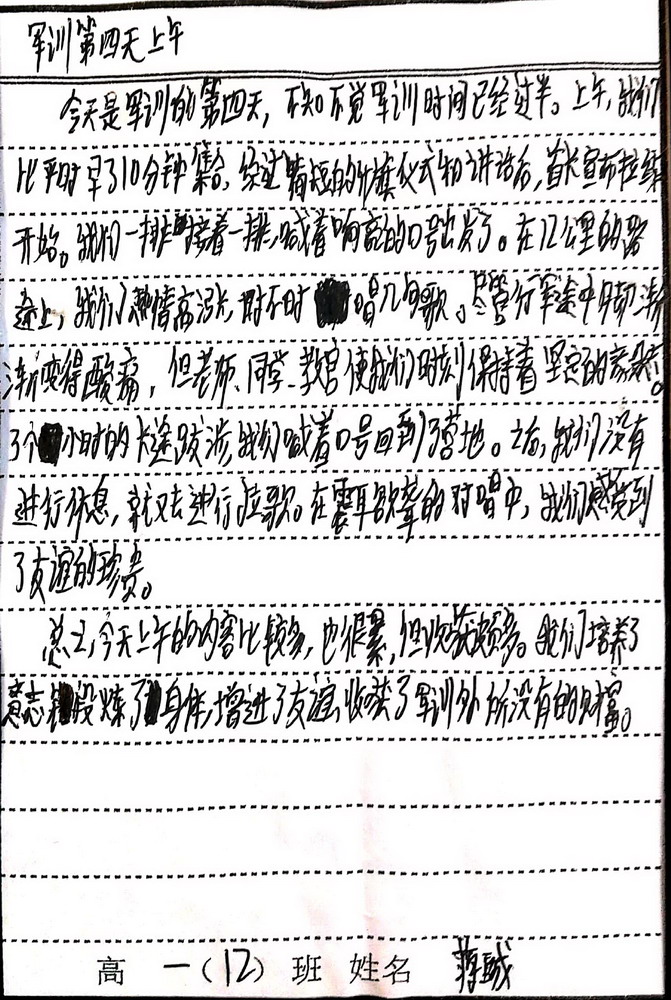 军训第四天上午
今天是军训的第四天，不知不觉军训时间已经过半。上午，我们
比平时早了10分钟集合，经过简短的升旗仪式和讲话后，首长宣布拉练
开始。我们一排接着一排，喊着响亮的口号出发了。在12公里的路
途上，我们热情高涨，时不时唱几句歌。尽管行军途中脚渐
渐变得酸痛，但老师、同学、教官使我们时刻保持着坚定的意志。
3个小时的长途跋涉，我们喊着口号回到了营地。之后，我们没有
进行休息，就又去进行拉歌。在震耳欲聋的对唱中，我们感受到
了友谊的珍贵。
总之，今天上午的内容比较多，也很累，但收获颇多。我们培养了
意志，锻炼了身体，增进了友谊，收获了军训外所没有的财富。
高一（12）班 姓名 蒋